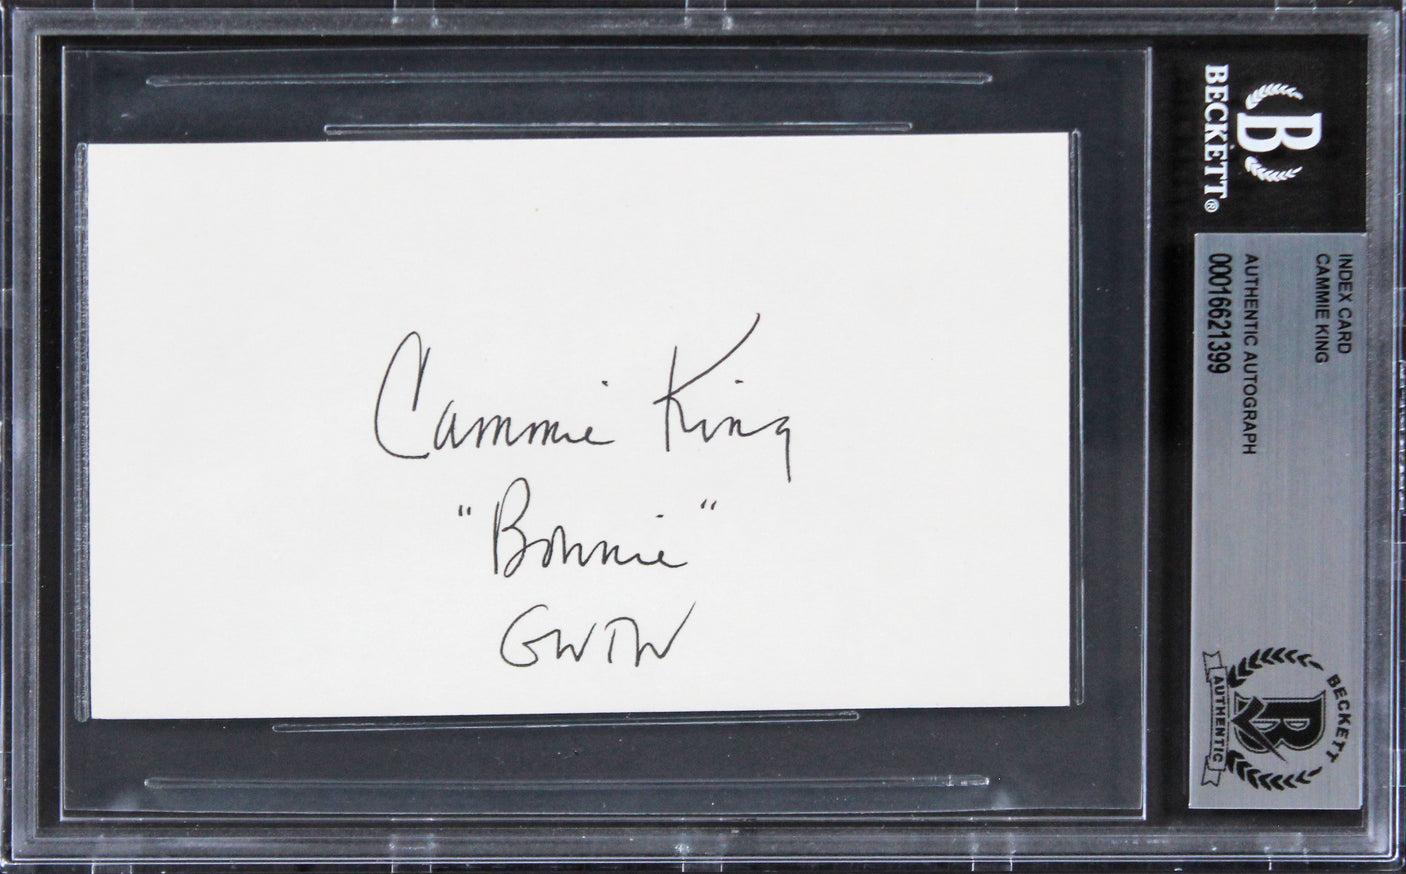 Cammie King
"Bonnie"
GWTW
B
BECKETT®
INDEX CARD
CAMMIE KING
AUTHENTIC AUTOGRAPH
00016621399
BECKETT
B
AUTHENTIC